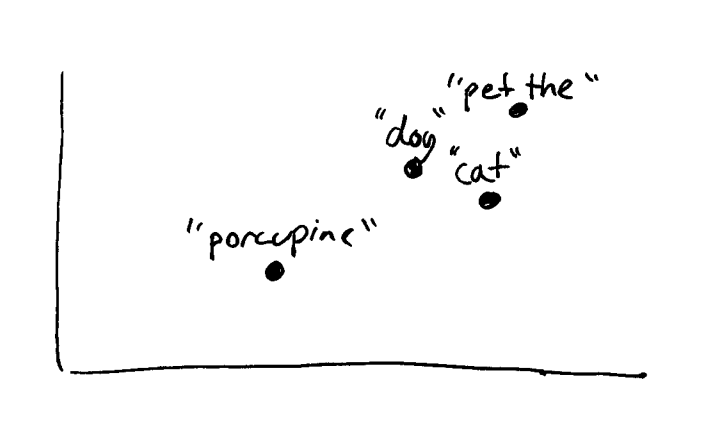 "pet the"
"dog"
"cat"
"porcupine"